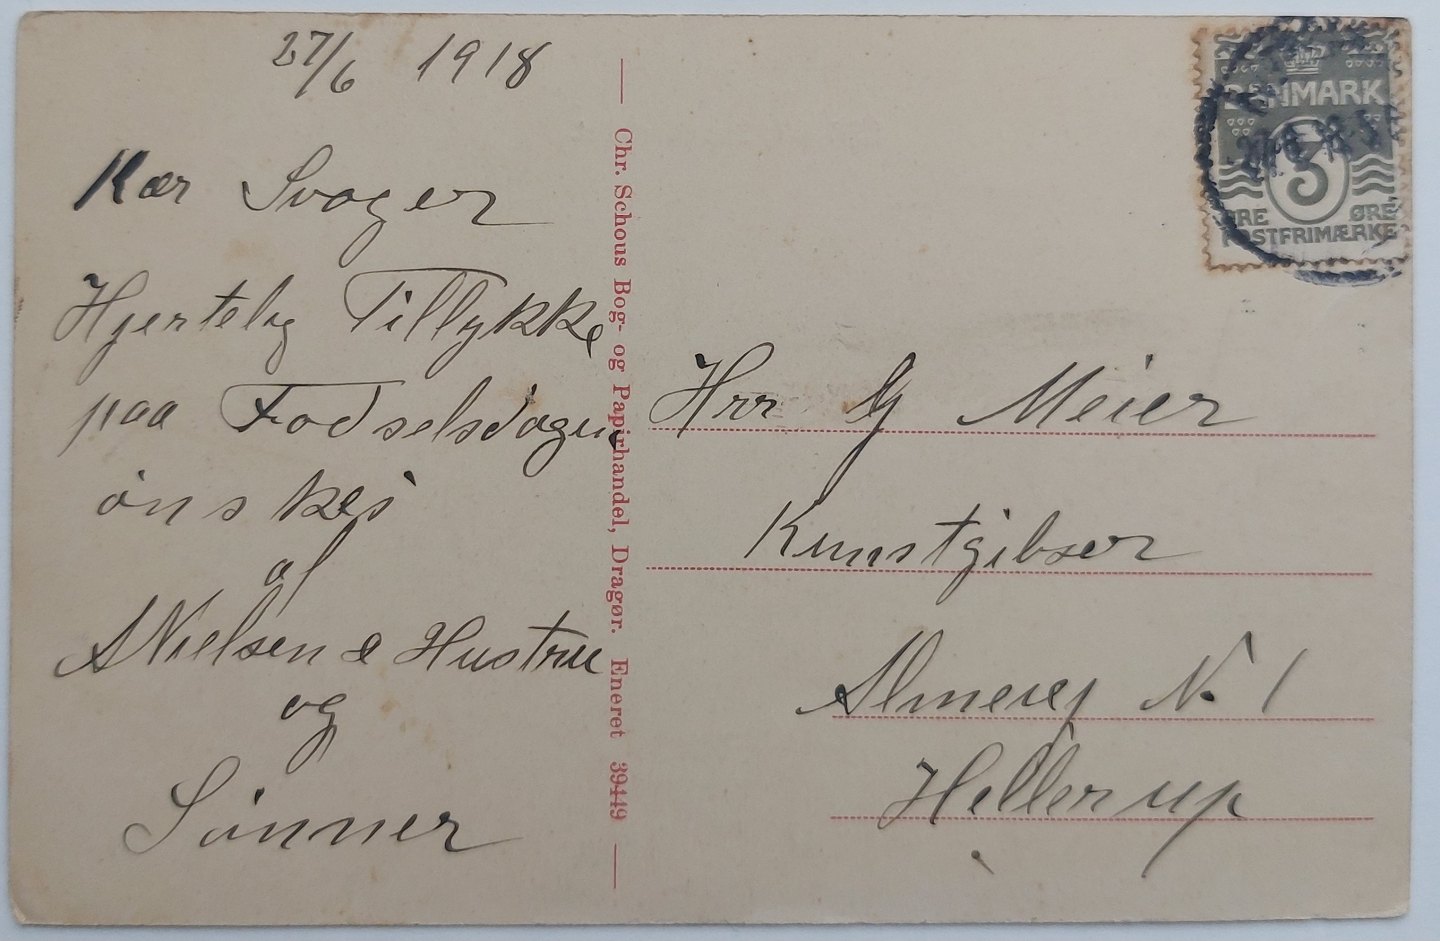 27/6 1918
Kær Svoger
Hjertelig Tillykke
paa Fødselsdagen
önskes
af
A Nielsen & Hustru
og
Sönner
Chr. Schous Bog- og Papirhandel, Dragør. Eneret 39449
DANMARK
3
ØRE ØRE
POSTFRIMÆRKE
Hrr G Meier
Kunstgibser
Almevej N. 1
Hellerup